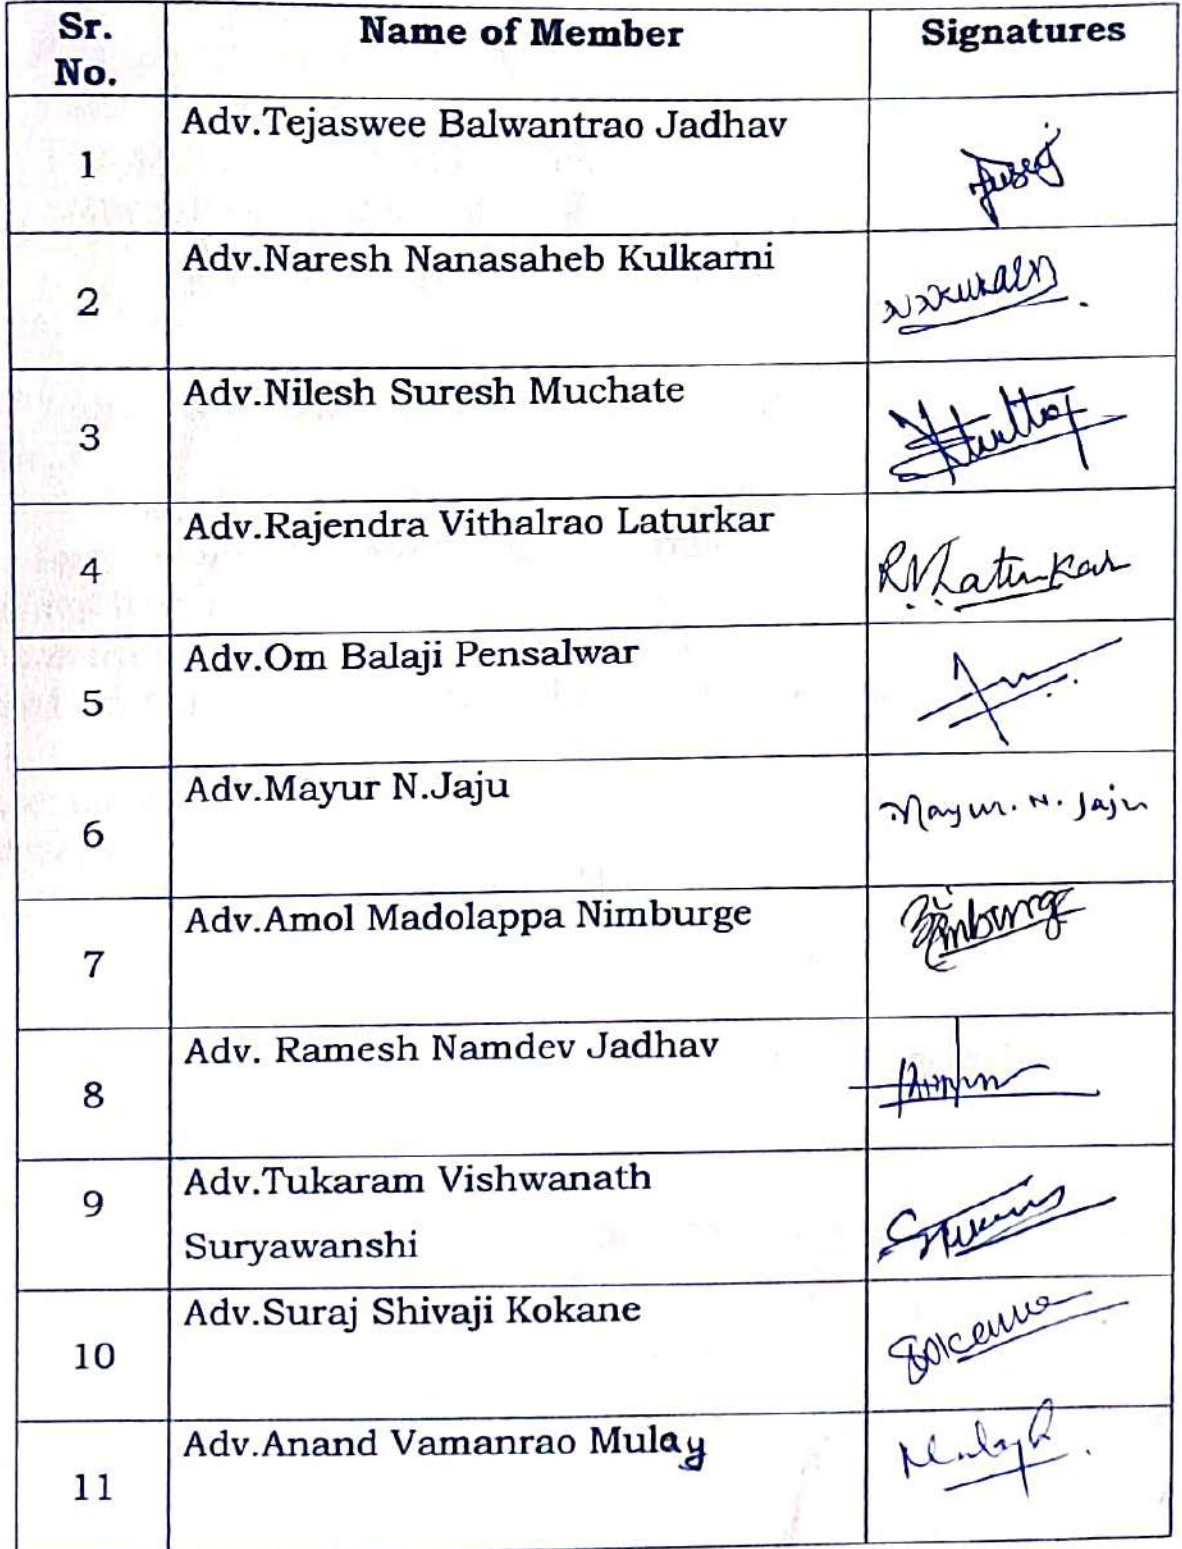 Sr. No. Name of Member Signatures
1 Adv.Tejaswee Balwantrao Jadhav
2 Adv.Naresh Nanasaheb Kulkarni
3 Adv.Nilesh Suresh Muchate
4 Adv.Rajendra Vithalrao Laturkar R.V.Laturkar
5 Adv.Om Balaji Pensalwar
6 Adv.Mayur N.Jaju Mayur. N. Jaju
7 Adv.Amol Madolappa Nimburge Nimburge
8 Adv. Ramesh Namdev Jadhav
9 Adv.Tukaram Vishwanath
Suryawanshi
10 Adv.Suraj Shivaji Kokane
11 Adv.Anand Vamanrao Mulay